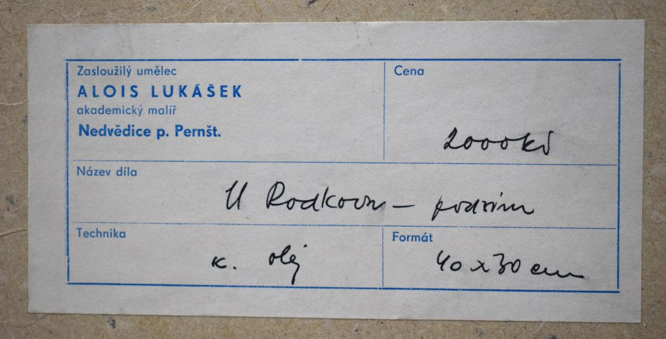 Zasloužilý umělec
ALOIS LUKÁŠEK
akademický malíř
Nedvědice p. Pernšt.
Cena
2000 Kč
Název díla
U Rodkova – podzim
Technika
k. olej
Formát
40 x 30 cm